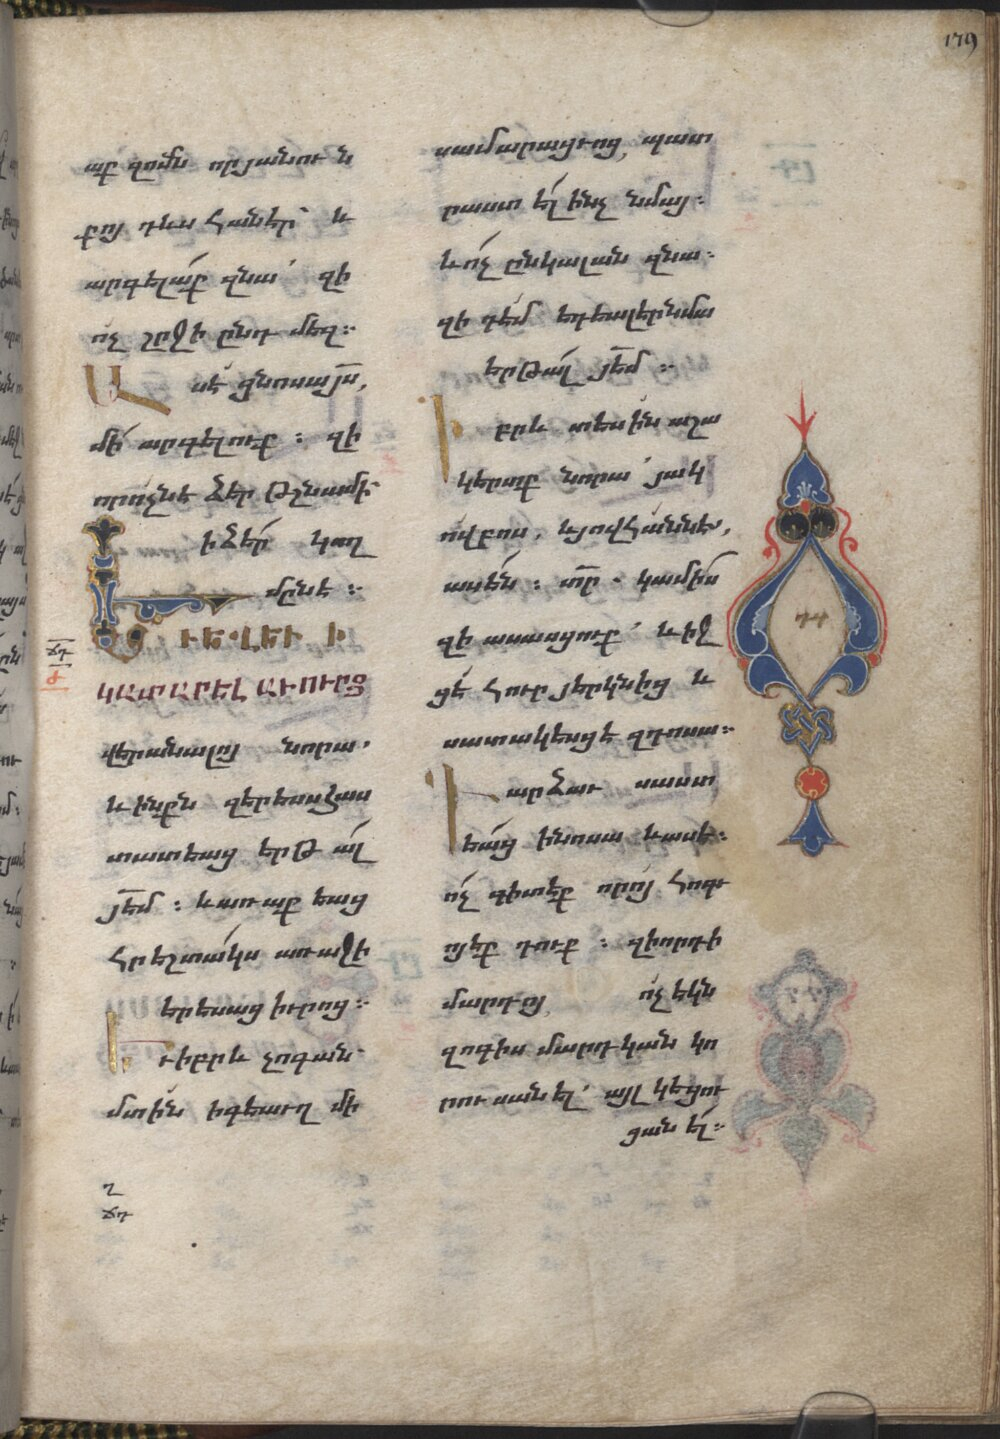 179
աք զոմն որ յանուն
քոյ դևս հանէր՝ և
արգելաք զնա՝ զի
ոչ շրջի ընդ մեզ։
Ասէ ցնոսա յս,
մի արգելուք ։ զի
որ ոչն է ձեր թշնամի՝
ի ձեր կող
մըն է ։
Եւ ԵՂԵՒ Ի
ԿԱՏԱՐԵԼ ԱՒՈՒՐՑ
վերանալոյ նորա՝
և ինքն զերեսս հաս
տատեաց երթալ
յեմ ։ և առաքեաց
հրեշտակս առաջի
երեսաց իւրոց։
Եւ իբրև չոգան՝
մտին ի գեաւղ մի
սամարացւոց, պատ
րաստել ինչ նմայ։
և ոչ ընկալան զնա։
զի դէմ եդեալ էր նմա
երթալ յեմ ։
Իբրև տեսին աշա
կերտք նորա՝ յակ
ովբոս, և յովհաննէս,
ասեն ։ տր . կամիս
զի ասասցուք՝ և իջ
ցէ հուր յերկնից և
սատակեսցէ զդոսա։
Դարձաւ սաստ
եաց ի նոսա և ասէ։
ոչ գիտէք որոյ հոգւ
ոյ էք դուք ։ զի որդի
մարդոյ ոչ եկն
զոգիս մարդկան կո
րուսանել՝ այլ կեցու
ցանել։
ՃԴ